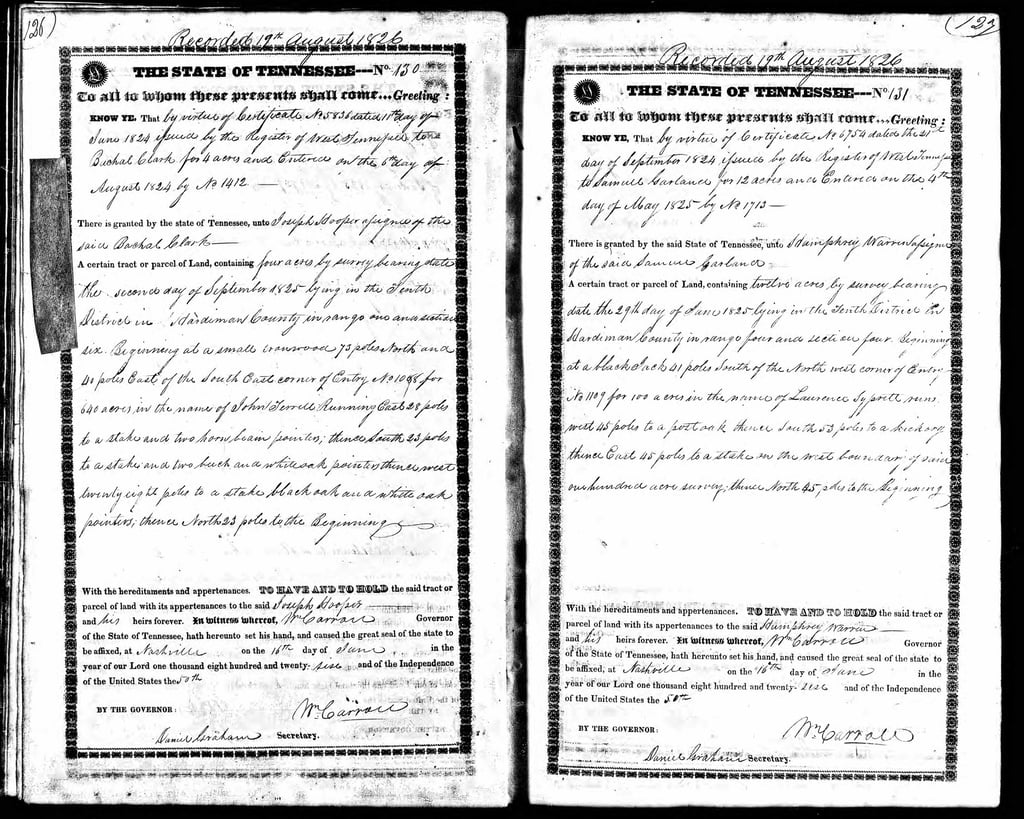 126)
Recorded 19th August 1826
THE STATE OF TENNESSEE---No. 130
To all to whom these presents shall come...Greeting:
KNOW YE, That by virtue of Certificate No 5836 dated 11th day of
June 1824 issued by the Register of West Tennessee to
Buchal Clark for 4 acres and Entered on the 6th day of
August 1824 by No 1412 —
There is granted by the state of Tennessee, unto Joseph Hooper assignee of the
said Bachal Clark —
A certain tract or parcel of Land, containing four acres by survey bearing date
the second day of September 1825 lying in the Tenth
District in Hardiman County in range one and section
six. Beginning at a small ironwood 73 poles North and
40 poles East of the South East corner of Entry No 1088 for
640 acres in the name of John Terrell Running East 28 poles
to a stake and two horn beam pointers; thence South 23 poles
to a stake and two buch and white oak pointers thence west
twenty eight poles to a stake black oak and white oak
pointers; thence North 23 poles to the Beginning
With the hereditaments and appertenances. TO HAVE AND TO HOLD the said tract or
parcel of land with its appertenances to the said Joseph Hooper
and his heirs forever. In witness whereof, Wm Carroll Governor
of the State of Tennessee, hath hereunto set his hand, and caused the great seal of the state to
be affixed, at Nashville on the 16th day of June, in the
year of our Lord one thousand eight hundred and twenty-six and of the Independence
of the United States the 50th
BY THE GOVERNOR: Wm Carroll
Daniel Graham Secretary.
Recorded 19th August 1826
THE STATE OF TENNESSEE---No 131
To all to whom these presents shall come...Greeting:
KNOW YE, That by virtue of Certificate No 6754 dated the 21st
day of September 1824 issued by the Register of West Tennessee
to Samuel Garland for 12 acres and Entered on the 4th
day of May 1825 by No 1713 —
There is granted by the said State of Tennessee, unto Humphrey Warren assignee
of the said Samuel Garland
A certain tract or parcel of Land, containing twelve acres by survey bearing
date the 29th day of June 1825 lying in the Tenth District in
Hardiman County in range four and section four. Beginning
at a black Jack 41 poles South of the North west corner of Entry
No 1109 for 100 acres in the name of Laurence runs
west 45 poles to a post oak thence South 53 poles to a hickory
thence East 45 poles to a stake on the west boundary of said
one hundred acre survey; thence North 45 poles to the Beginning
With the hereditaments and appertenances. TO HAVE AND TO HOLD the said tract or
parcel of land with its appertenances to the said Humphrey Warren —
and his heirs forever. In witness whereof, Wm Carroll Governor
of the State of Tennessee, hath hereunto set his hand, and caused the great seal of the state to
be affixed, at Nashville on the 16th day of June in the
year of our Lord one thousand eight hundred and twenty-six and of the Independence
of the United States the 50th
BY THE GOVERNOR: Wm Carroll
Daniel Graham Secretary.